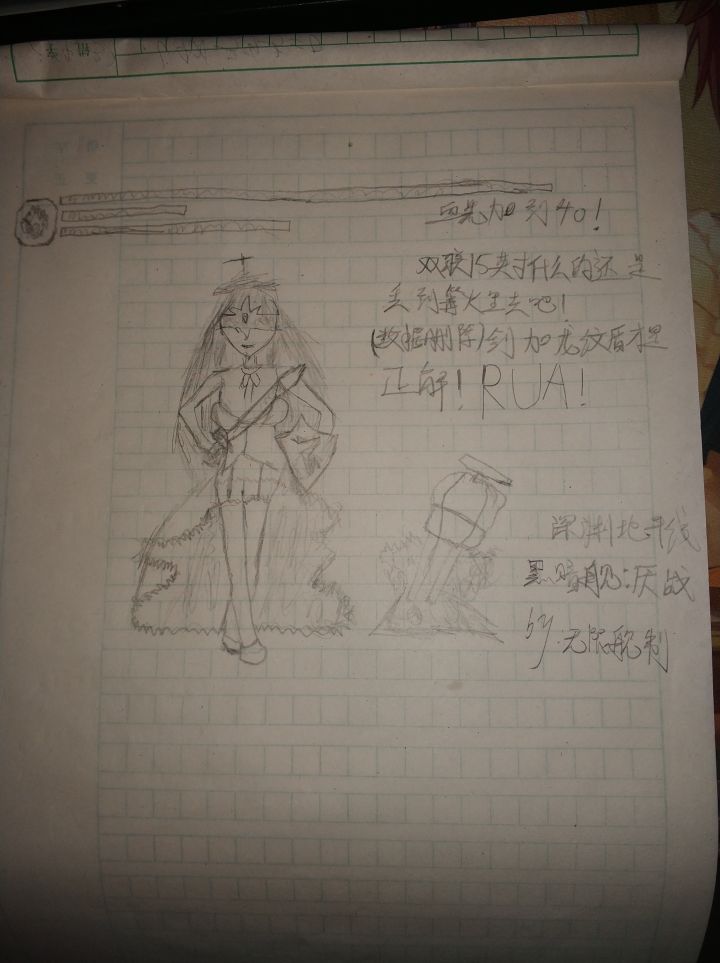 血先加到40！
双联15英寸什么的还是
丢到篝火里去吧！
(数据删除)剑加龙纹盾才是
正解！RUA！
深渊地平线
黑暗舰:厌战
by.无限舰制